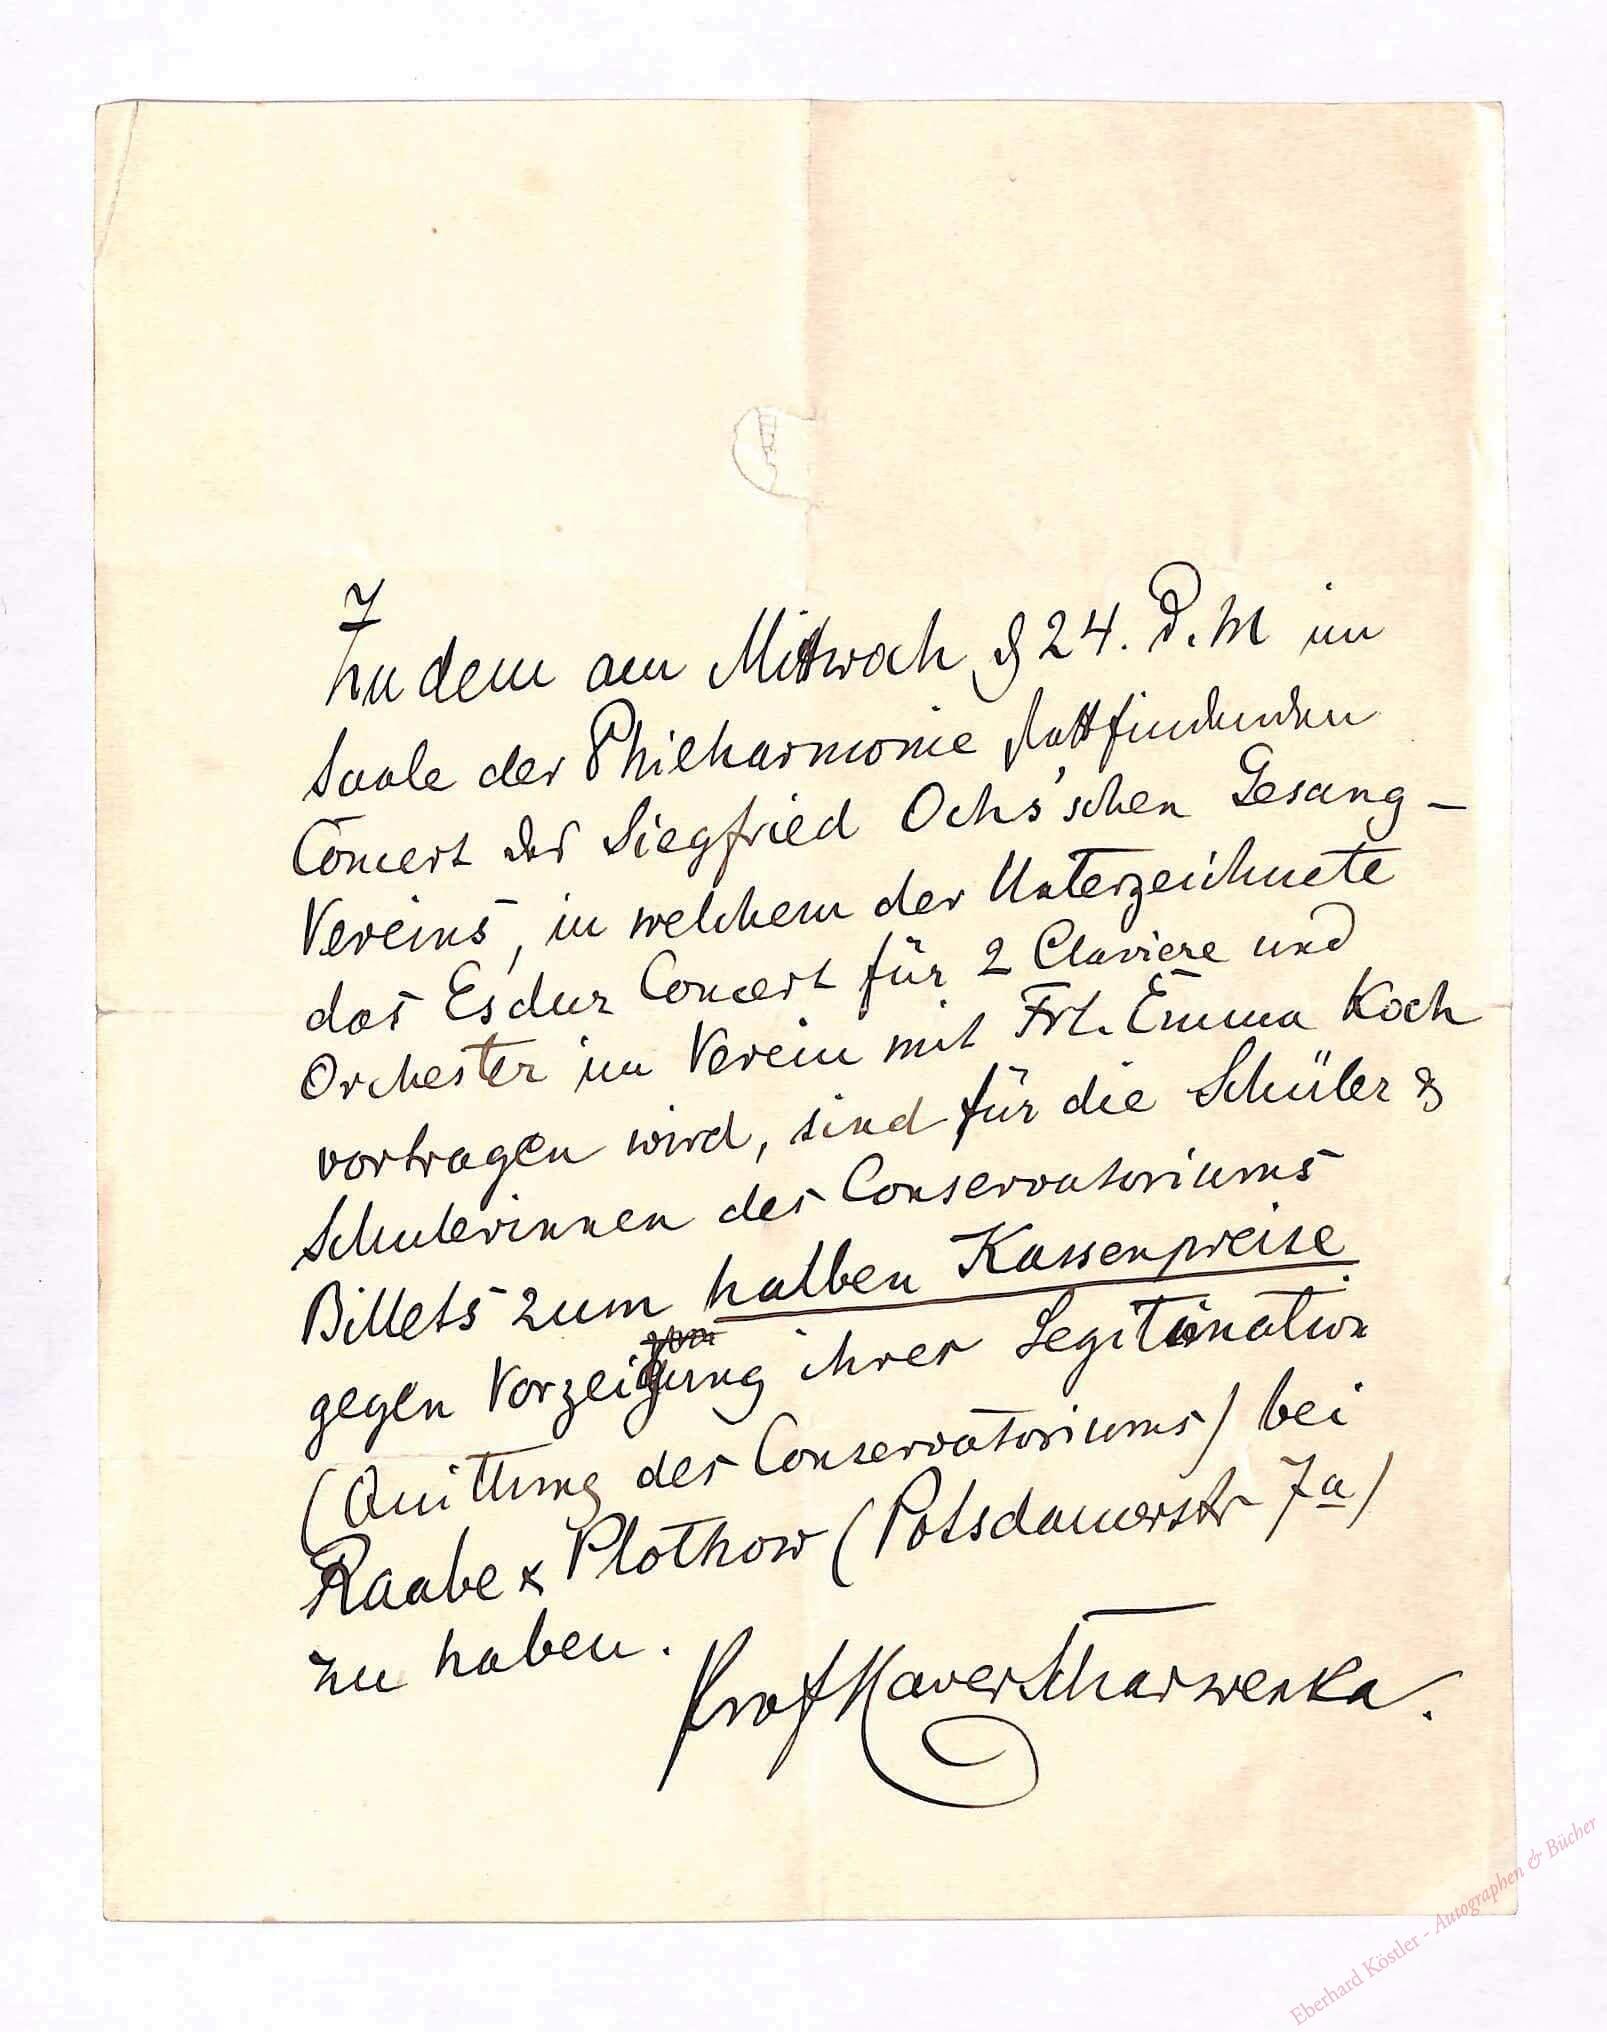 Zu dem am Mittwoch d 24. d. M im
Saale der Philharmonie stattfindenden
Concert des Siegfried Ochs'schen Gesang-
Vereins, in welchem der Unterzeichnete
das Esdur Concert für 2 Claviere und
Orchester im Verein mit Frl. Emma Koch
vortragen wird, sind für die Schüler &
Schulerinnen des Conservatoriums
Billets zum halben Kassenpreise
gegen Vorzeigung ihrer Legitimation
(Quittung des Conservatoriums) bei
Raabe & Plothow (Potsdamerstr 7a)
zu haben.
Prof Xaver Scharwenka.
Eberhard Köstler - Autographen & Bücher